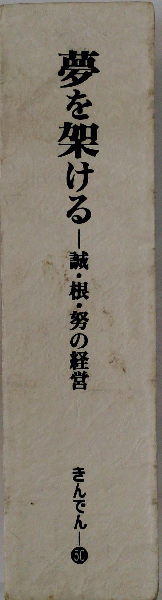 夢を架ける―誠・根・努の経営
きんでん―50